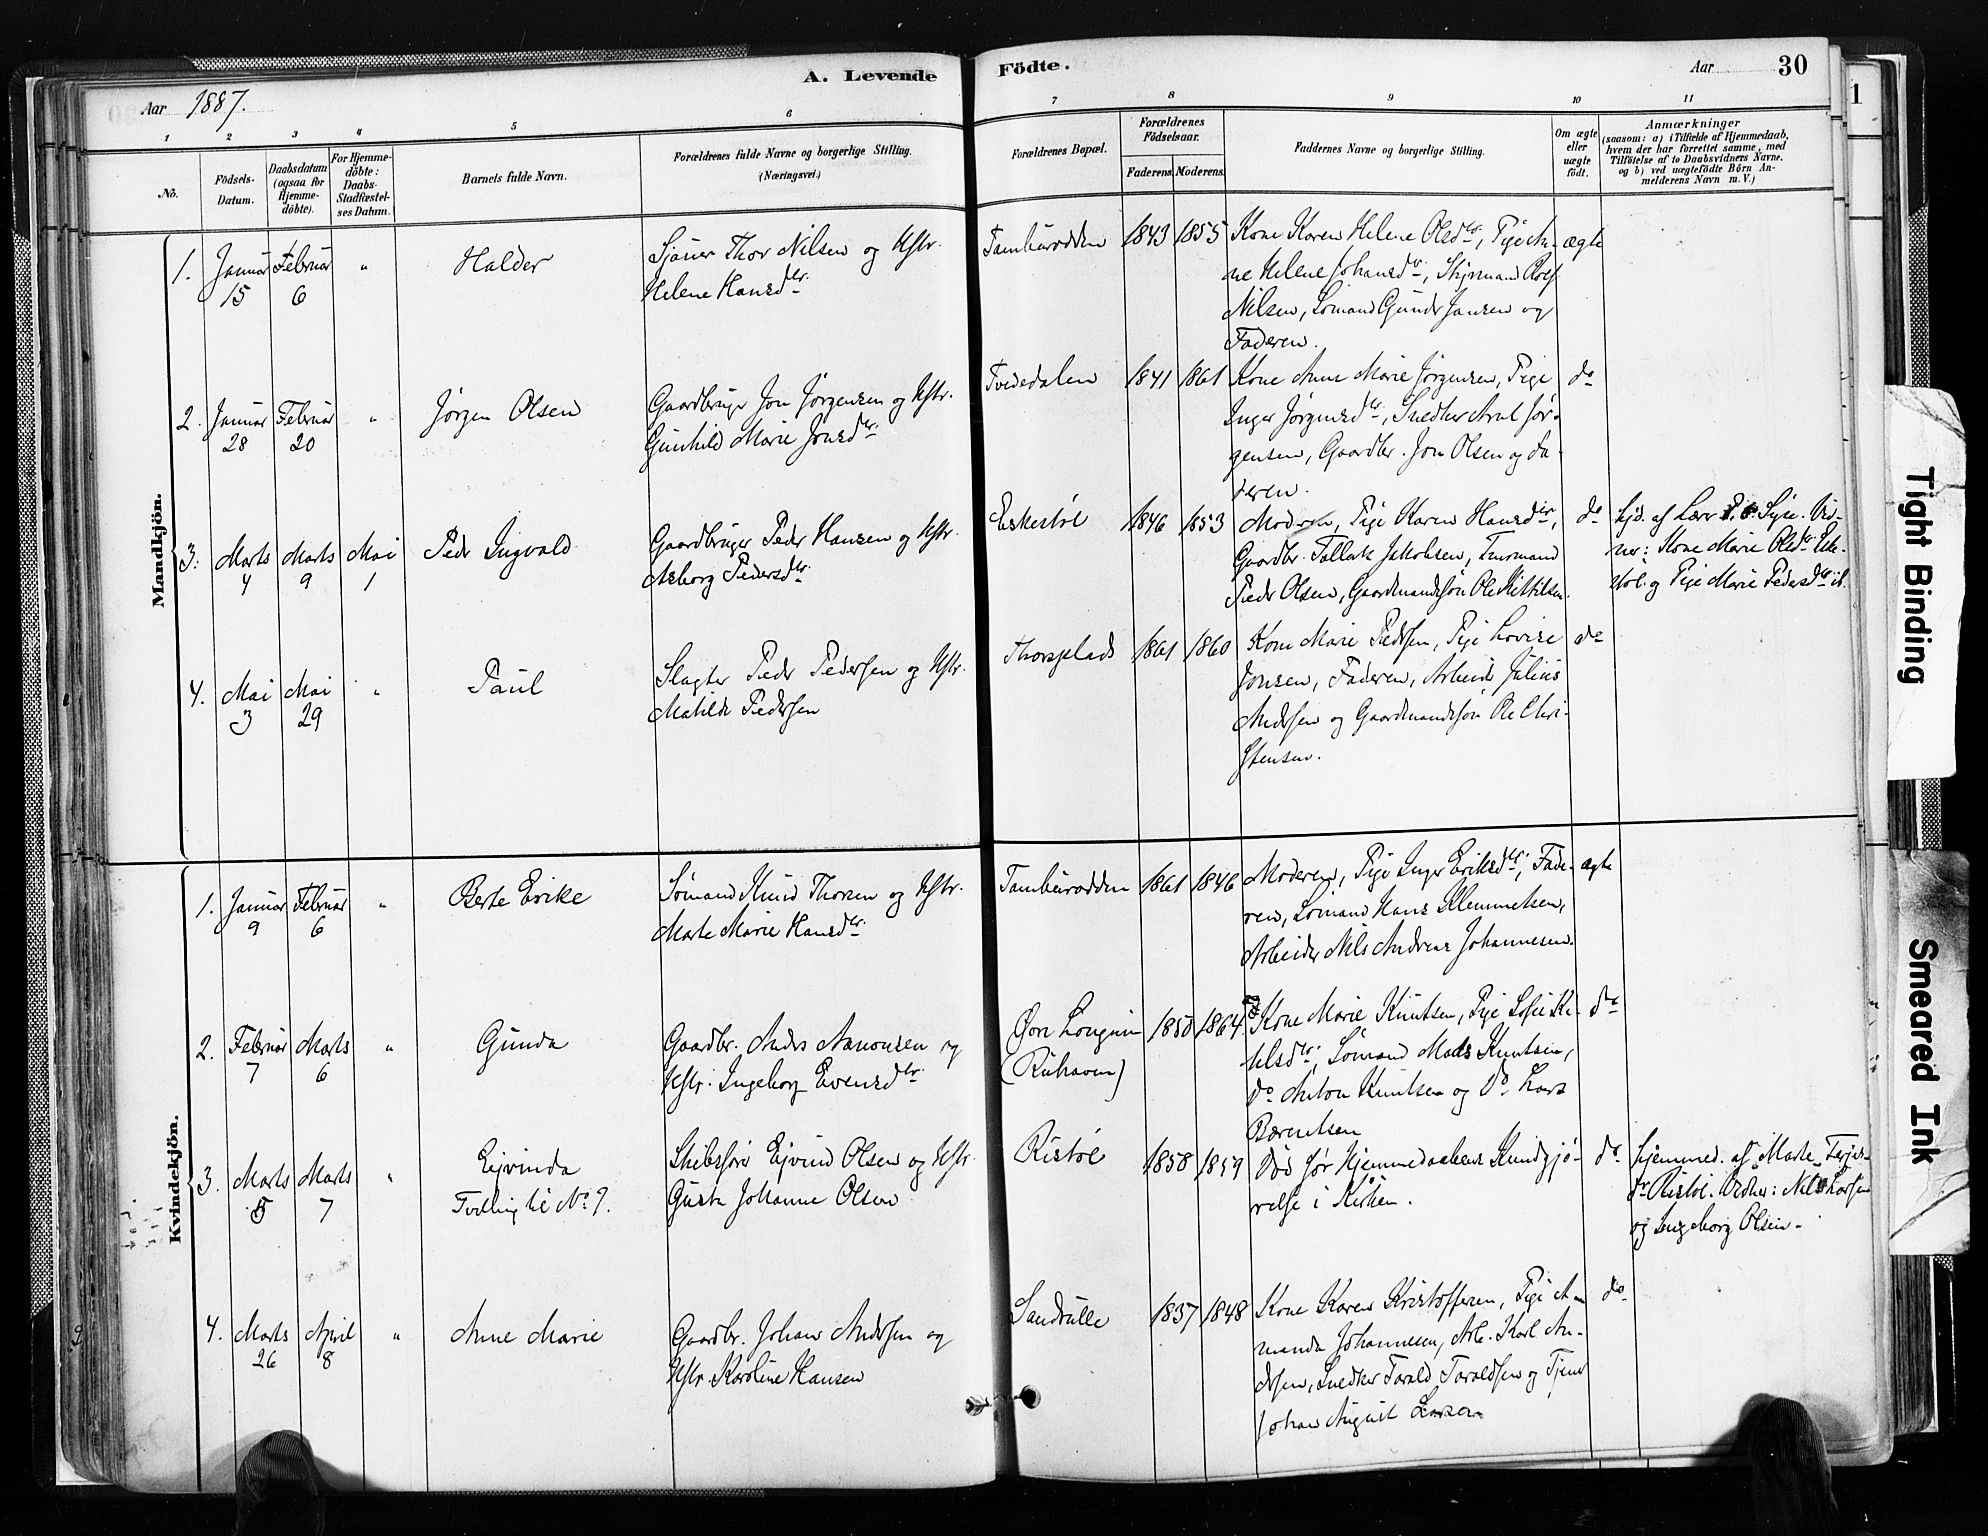 A. Levende
Födte.
Aar 1887.
Aar 30
1 2 3 4 5 6 7 8 9 10 11
No.
Födsels-
Datum.
Daabsdatum
(ogsaa for
Hjemme-
döbte).
For Hjemme-
döbte:
Daabs-
Stadfæstel-
ses Datum.
Barnets fulde Navn.
Forældrenes fulde Navne og borgerlige Stilling.
(Næringsvei.)
Forældrenes Bopæl.
Forældrenes
Födselsaar.
Faderens. Moderens.
Faddernes Navne og borgerlige Stilling.
Om ægte
eller
uægte
födt.
Anmærkninger
(saasom: a) i Tilfælde af Hjemmedaab,
hvem der har forrettet samme, med
Tilföielse af to Daabsvidners Navne,
og b) ved uægtefödte Börn An-
melderens Navn m. V.)
Mandkjön.
1. Januar 15 Februar 6 " Halder
Sjauer Thor Nilsen og Hstr.
Helene Hansdtr.
Tamburodden 1843 1855
Kone Karen Helene Olsdtr, Pige An-
ne Helene Johansdtr, Styrmand Rolf
Nilsen, Sømand Gunder Jansen og
Faderen.
ægte
2. Januar 28 Februar 20 " Jørgen Olsen
Gaardbruger Jon Jørgensen og Hstr.
Gunhild Marie Jonsdtr.
Tvededalen 1841 1861
Kone Anne Marie Jørgensen, Pige
Inger Jørgensdtr, Snedker Arnt Jør-
gensen, Gaardbr. Jon Olsen og Fa-
deren.
do
3. Marts 4 Marts 9 Mai 1 Peder Ingvald
Gaardbruger Peder Hansen og Hstr.
Asborg Pedersdtr.
Eskestøl 1846 1853
Moderen, Pige Karen Hansdtr,
Gaardbr. Tallak Jakobsen, Tmrmand
Peder Olsen, Gaardmandssøn Ole Kittilsen.
do
hjd. af Lærer
ner: Kone Marie Olsdtr Eske-
støl. og Pige Marie Pedersdtr ib.
4. Mai 3 Mai 29 " Paul
Slagter Peder Pedersen og Hstr.
Matilde Pedersen
Thorsplads 1861 1860
Kone Marie Pedersen, Pige Lovise
Jonsen, Faderen, Arbeider Julius
Andersen og Gaardmandssøn Ole Chri-
stensen.
do
Kvindekjön.
1. Januar 9 Februar 6 " Berte Erike
Sømand Knud Thorsen og Hstr.
Marte Marie Hansdtr.
Tamburodden 1861 1846
Moderen, Pige Inger Eriksdtr, Fade-
ren, Sømand Hans Klemmetsen,
Arbeider Nils Andreas Johannesen.
ægte
2. Februar 7 Marts 6 " Gunda
Gaardbr. Anders Aanonsen og
Hstr. Ingeborg Evensdtr.
Øvre Longum
(Rishaven)
1850 1864
Kone Marie Knutsen, Pige Sofie Ki-
tilsdtr, Sømand Mads Knutsen,
do Anton Knutsen og do Lars
Berentsen
do
3. Marts 5 Marts 7 " Ejvinda
Tvilling til No 9.
Skibsfører Ejvind Olsen og Hstr.
Gusta Johanne Olsen
Ristøl 1858 1859
Død før Hjemmedaabens Kundgjø-
relse i Kirken.
do
hjemmed. af Marte Terjes-
dr Ristøl. Vidner: Nils Larsen
og Ingeborg Olsen.
4. Marts 26 April 8 " Anne Marie
Gaardbr. Johan Andersen og
Hstr. Karoline Hansen
Sandkulle 1837 1848
Kone Karen Kristoffersen, Pige A-
manda Johannesen, Arb. Karl An-
dersen, Snedker Tarald Taraldsen og Tjener
Johan August Larsen
do
Tight Binding
Smeared Ink